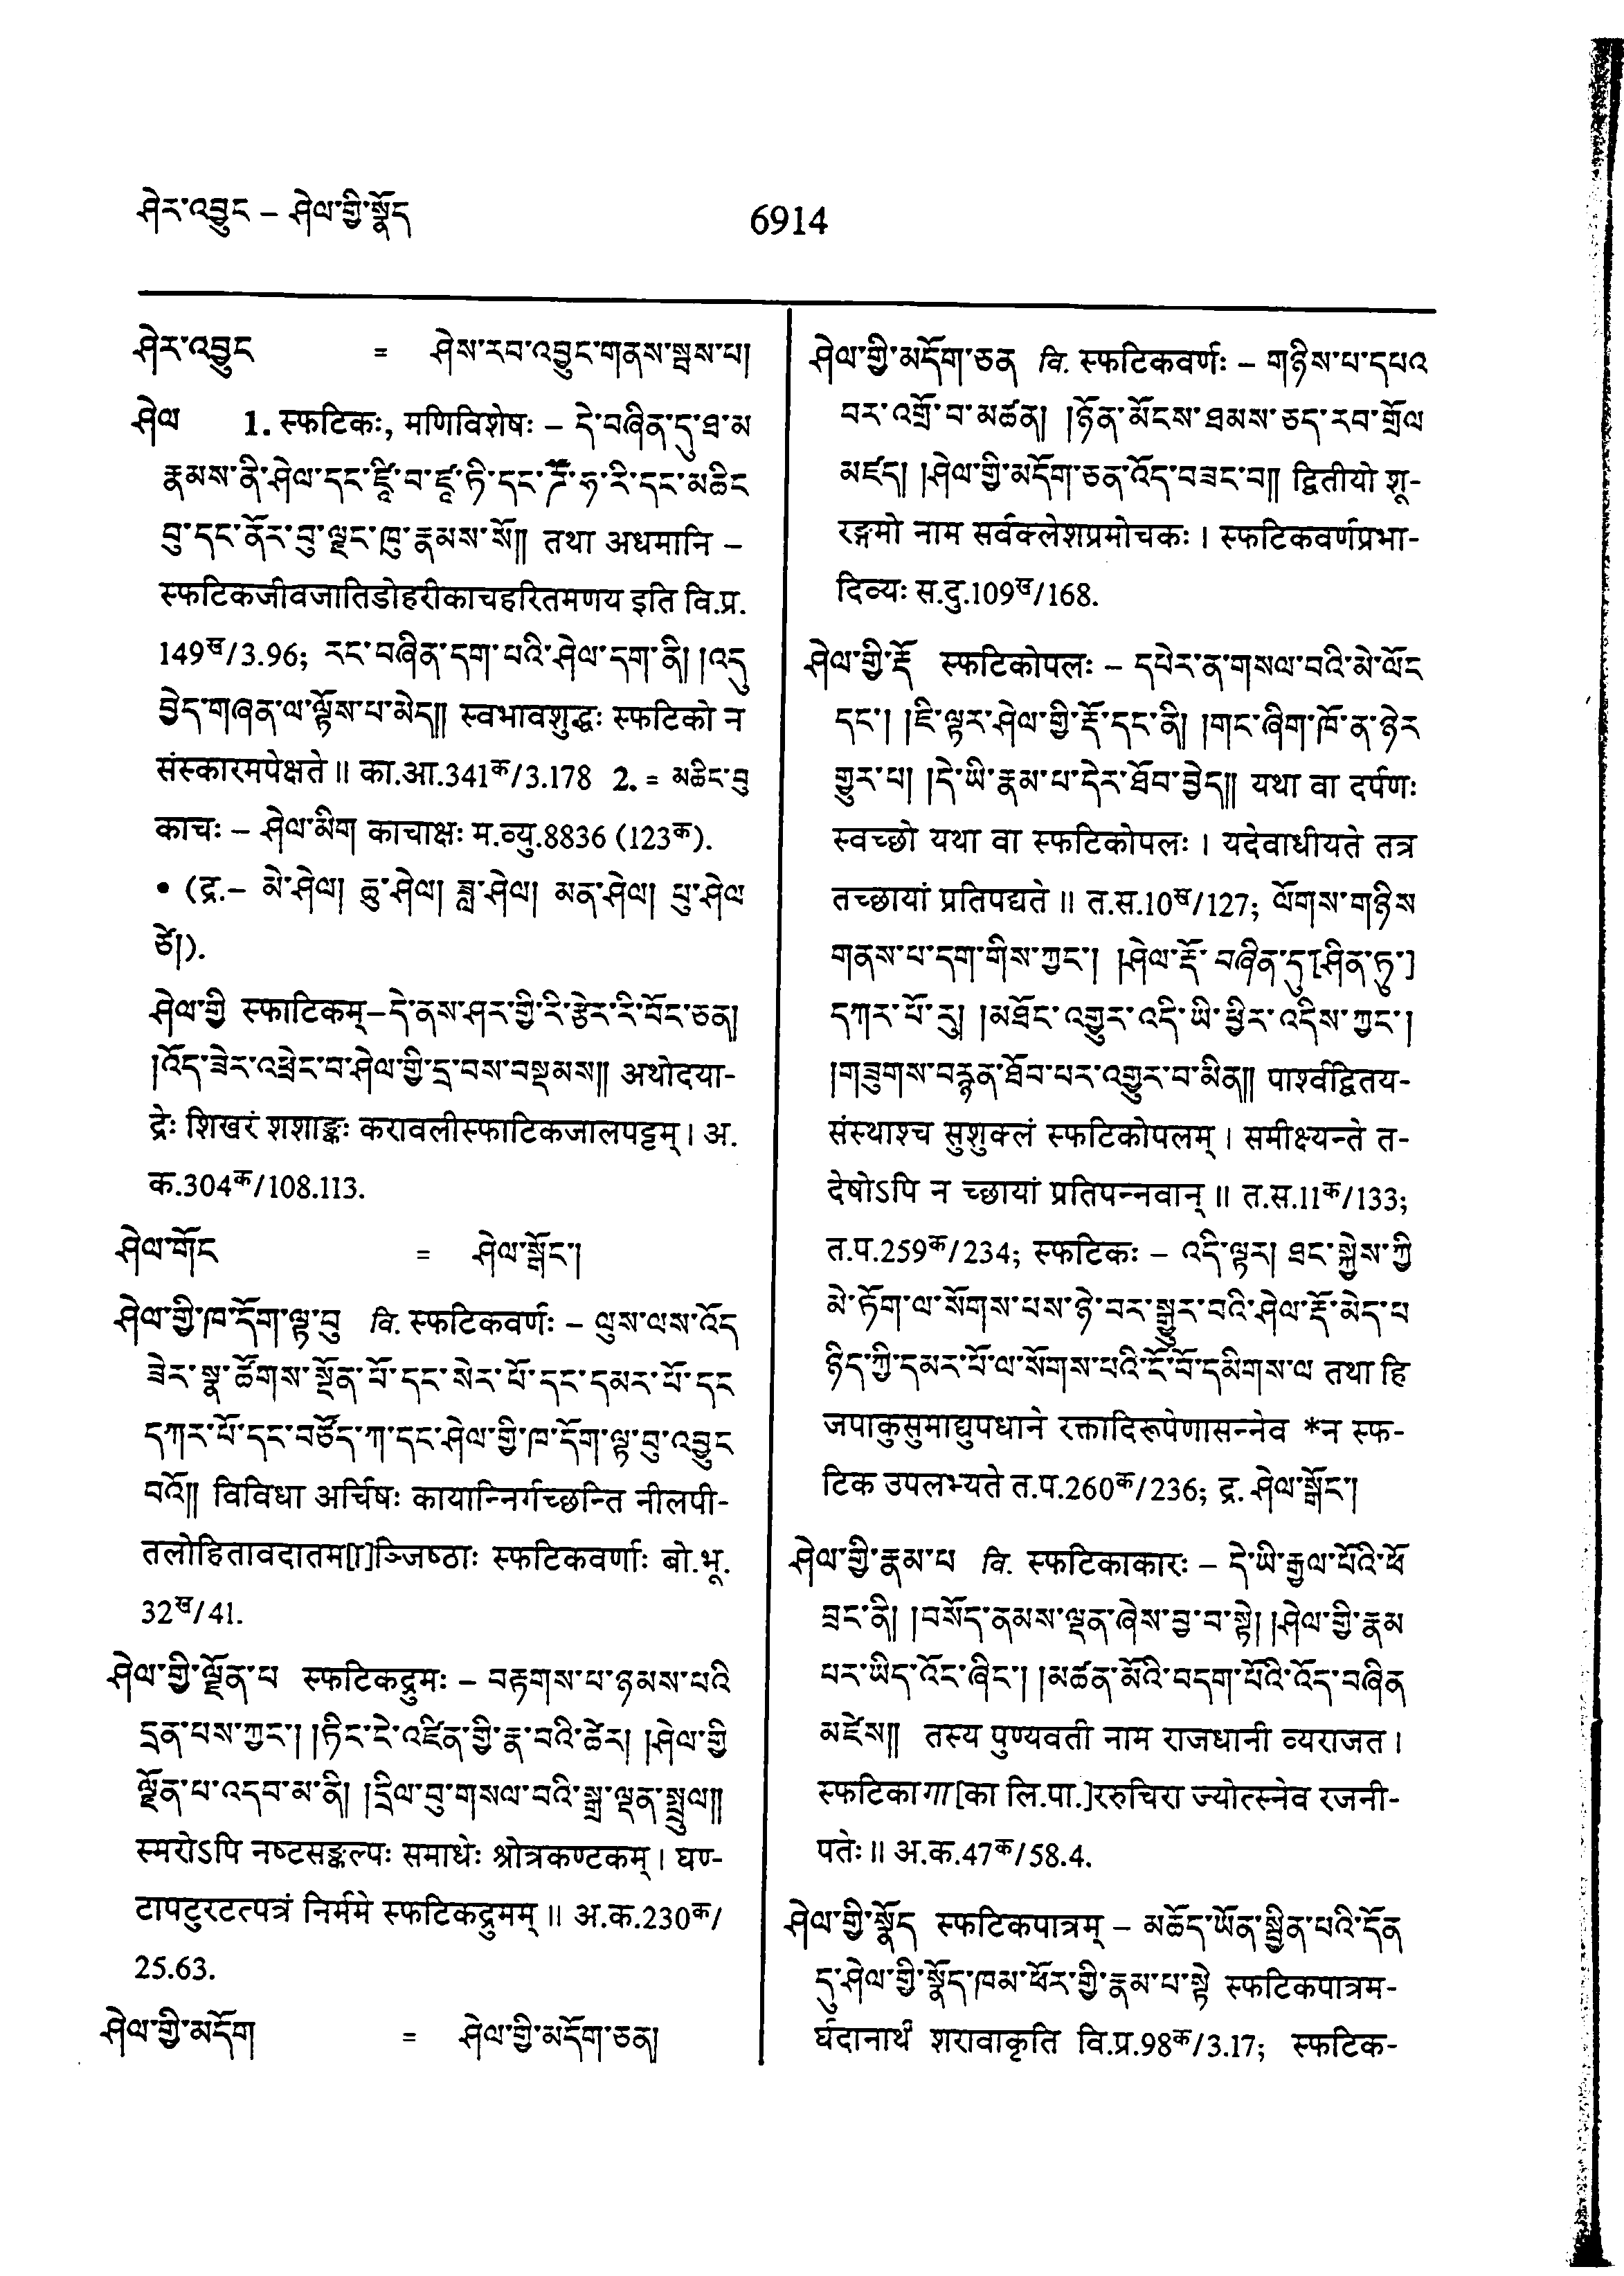 ཤེར་འབྱུང – ཤེལ་གྱི་སྣོད
6914
ཤེར་འབྱུང = ཤེས་རབ་འབྱུང་གནས་སྦས་པ།
ཤེལ 1. स्फटिकः, मणिविशेषः – དེ་བཞིན་དུ་ཐ་མ
རྣམས་ནི་ཤེལ་དང་ཛཱི་བ་ཛཱ་ཏི་དང་ཌོ་ཧ་རི་དང་མཆིང
བུ་དང་ནོར་བུ་ལྗང་ཁུ་རྣམས་སོ༎ तथा अधमानि –
स्फटिकजीवजातिडोहरीकाचहरितमणय इति वि.प्र.
149ख/3.96; རང་བཞིན་དག་པའི་ཤེལ་དག་ནི། །འདུ
བྱེད་གཞན་ལ་ལྟོས་པ་མེད༎ स्वभावशुद्धः स्फटिको न
संस्कारमपेक्षते ॥ का.आ.341क/3.178 2. = མཆིང་བུ
काचः – ཤེལ་མིག काचाक्षः म.व्यु.8836 (123क).
• (द्र.– མེ་ཤེལ། ཆུ་ཤེལ། ཟླ་ཤེལ། མན་ཤེལ། པུ་ཤེལ
ཙེ།).
ཤེལ་གྱི स्फाटिकम्–དེ་ནས་ཤར་གྱི་རི་རྩེར་རི་བོང་ཅན།
།འོད་ཟེར་འཕྲེང་བ་ཤེལ་གྱི་དྲ་བས་བསྡམས༎ अथोदया-
द्रेः शिखरं शशाङ्कः करावलीस्फाटिकजालपट्टम् । अ.
क.304क/108.113.
ཤེལ་གོང = ཤེལ་སྒོང་།
ཤེལ་གྱི་ཁ་དོག་ལྟ་བུ वि. स्फटिकवर्णः – ལུས་ལས་འོད
ཟེར་སྣ་ཚོགས་སྔོན་པོ་དང་སེར་པོ་དང་དམར་པོ་དང
དཀར་པོ་དང་བཙོད་ཀ་དང་ཤེལ་གྱི་ཁ་དོག་ལྟ་བུ་འབྱུང
བའོ༎ विविधा अर्चिषः कायान्निर्गच्छन्ति नीलपी-
तलोहितावदातम[ा]ञ्जिष्ठाः स्फटिकवर्णाः बो.भू.
32ख/41.
ཤེལ་གྱི་ལྗོན་པ स्फटिकद्रुमः – བརྟགས་པ་ཉམས་པའི
དྲན་པས་ཀྱང་། །ཏིང་ངེ་འཛིན་གྱི་རྣ་བའི་ཚེར། །ཤེལ་གྱི
ལྗོན་པ་འདབ་མ་ནི། །དྲིལ་བུ་གསལ་བའི་སྒྲ་ལྡན་སྤྲུལ༎
स्मरोऽपि नष्टसङ्कल्पः समाधेः श्रोत्रकण्टकम् । घण-
टापटुरटत्पत्रं निर्ममे स्फटिकद्रुमम् ॥ अ.क.230क/
25.63.
ཤེལ་གྱི་མདོག = ཤེལ་གྱི་མདོག་ཅན།
ཤེལ་གྱི་མདོག་ཅན वि. स्फटिकवर्णः – གཉིས་པ་དཔའ
བར་འགྲོ་བ་མཚན། །ཉོན་མོངས་ཐམས་ཅད་རབ་གྲོལ
མཛད། །ཤེལ་གྱི་མདོག་ཅན་འོད་བཟང་བ༎ द्वितीयो शू-
रङ्गमो नाम सर्वक्लेशप्रमोचकः । स्फटिकवर्णप्रभा-
दिव्यः स.दु.109ख/168.
ཤེལ་གྱི་རྡོ स्फटिकोपलः – དཔེར་ན་གསལ་བའི་མེ་ལོང
དང་། །ཇི་ལྟར་ཤེལ་གྱི་རྡོ་དང་ནི། །གང་ཞིག་ཁོ་ན་ཉེར
གྱུར་པ། །དེ་ཡི་རྣམ་པ་དེར་ཐོབ་བྱེད༎ यथा वा दर्पणः
स्वच्छो यथा वा स्फटिकोपलः । यदेवाधीयते तत्र
तच्छायां प्रतिपद्यते ॥ त.स.10ख/127; ལོགས་གཉིས
གནས་པ་དག་གིས་ཀྱང་། །ཤེལ་རྡོ་ བཞིན་དུ་[ཤིན་ཏུ་]
དཀར་པོ་རུ། །མཐོང་འགྱུར་འདི་ཡི་ཕྱིར་འདིས་ཀྱང་།
།གཟུགས་བརྙན་ཐོབ་པར་འགྱུར་བ་མིན༎ पार्श्वद्वितय-
संस्थाश्च सुशुक्लं स्फटिकोपलम् । समीक्ष्यन्ते त-
देषोऽपि न च्छायां प्रतिपन्नवान् ॥ त.स.11क/133;
त.प.259क/234; स्फटिकः – འདི་ལྟར། ཐང་སྐྱེས་ཀྱི
མེ་ཏོག་ལ་སོགས་པས་ཉེ་བར་སྒྱུར་བའི་ཤེལ་རྡོ་མེད་པ
ཉིད་ཀྱི་དམར་པོ་ལ་སོགས་པའི་ངོ་བོ་དམིགས་ལ तथा हि
जपाकुसुमाद्युपधाने रक्तादिरूपेणासन्नेव *न स्फ-
टिक उपलभ्यते त.प.260क/236; द्र. ཤེལ་སྒོང་།
ཤེལ་གྱི་རྣམ་པ वि. स्फटिकाकारः – དེ་ཡི་རྒྱལ་པོའི་ཕོ
བྲང་ནི། །བསོད་ནམས་ལྡན་ཞེས་བྱ་བ་སྟེ། །ཤེལ་གྱི་རྣམ
པར་ཡིད་འོང་ཞིང་། །མཚན་མོའི་བདག་པོའི་འོད་བཞིན
མཛེས༎ तस्य पुण्यवती नाम राजधानी व्यराजत ।
स्फटिकागा [का लि.पा.]ररुचिरा ज्योत्स्नेव रजनी-
पतेः ॥ अ.क.47क/58.4.
ཤེལ་གྱི་སྣོད स्फटिकपात्रम् – མཆོད་ཡོན་སྦྱིན་པའི་དོན
དུ་ཤེལ་གྱི་སྣོད་ཁམ་ཕོར་གྱི་རྣམ་པ་སྟེ स्फटिकपात्रम-
र्घदानार्थं शरावाकृति वि.प्र.98क/3.17; स्फटिक-